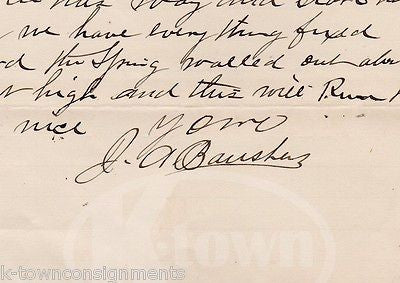 way and
we have everything fixed
the Spring walled out
high and this will Run
nice Yours
J. A. Bausher
K-town
k-townconsignments